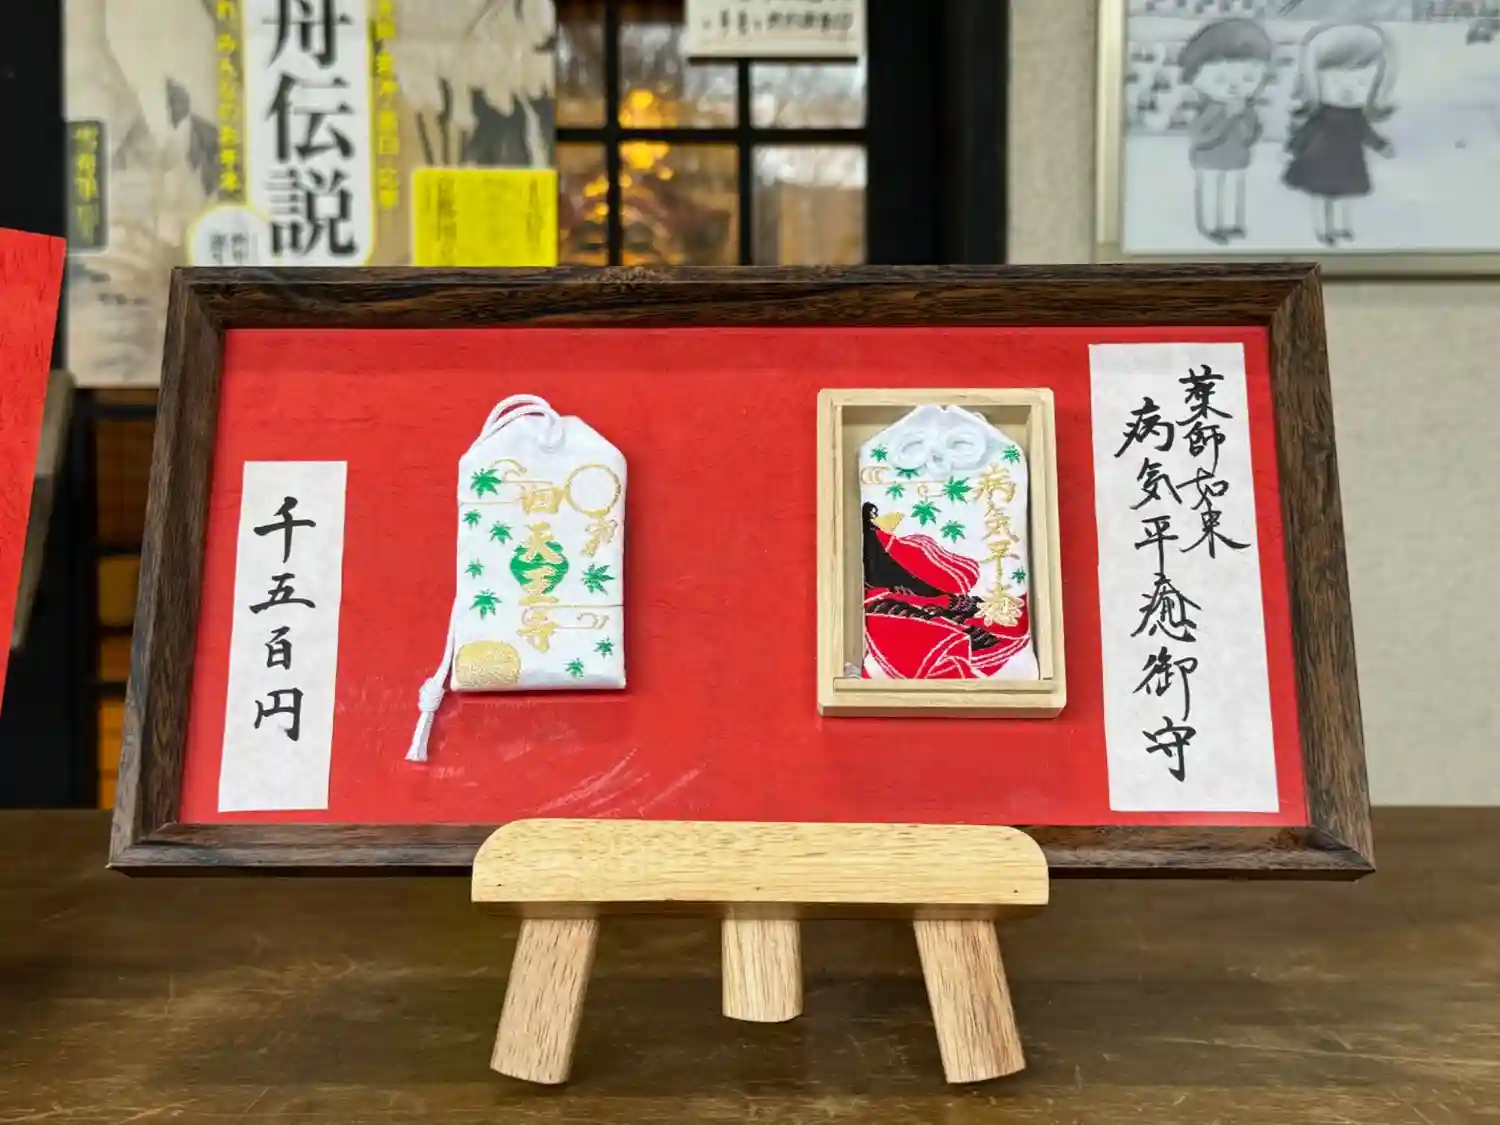 薬師如来
病気平癒御守
病気平癒
四天王寺
千五百円
舟伝説